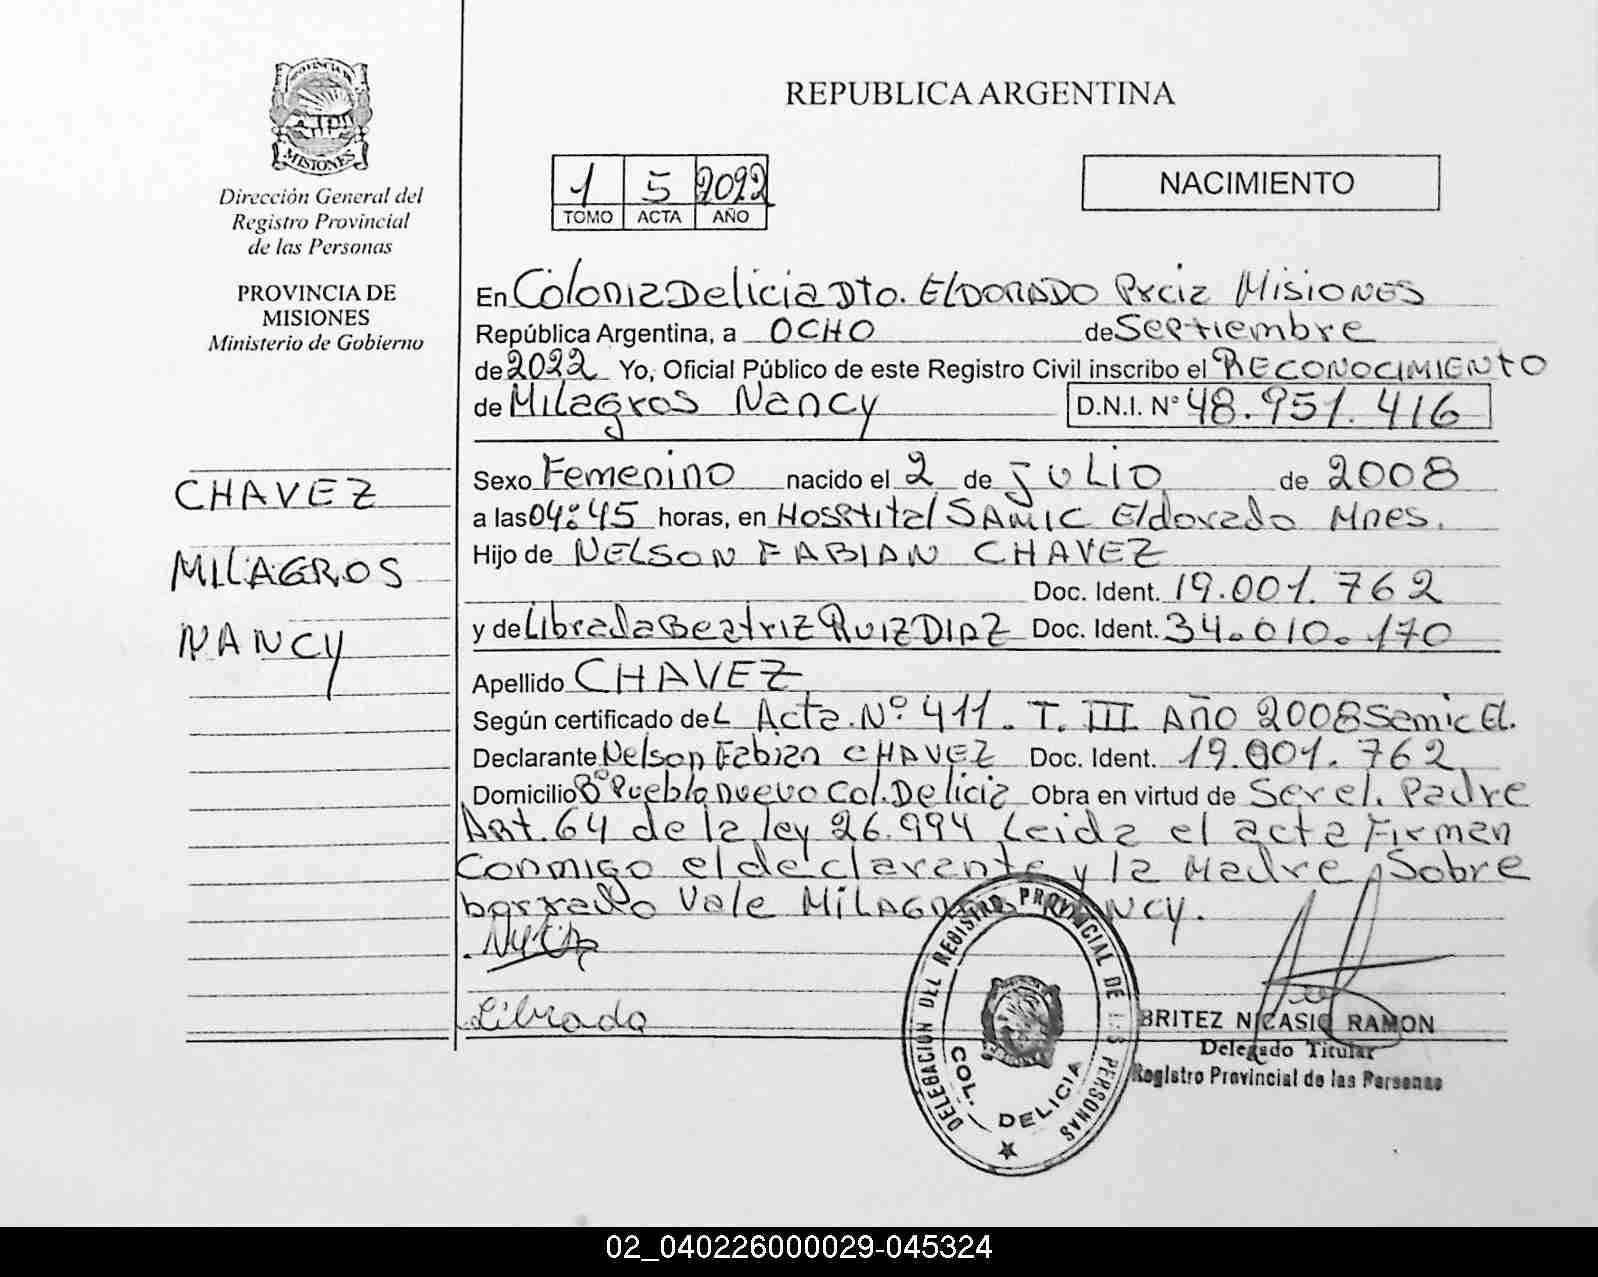 PROVINCIA DE
MISIONES
Dirección General del
Registro Provincial
de las Personas
PROVINCIA DE
MISIONES
Ministerio de Gobierno
CHAVEZ
MILAGROS
NANCY
REPUBLICA ARGENTINA
1 5 2022
TOMO ACTA AÑO
NACIMIENTO
En Colonia Delicia Dto. ELDORADO Pxcia Misiones
República Argentina, a OCHO de Septiembre
de 2022 Yo, Oficial Público de este Registro Civil inscribo el RECONOCIMIENTO
de Milagros Nancy D.N.I. N° 48.951.416
Sexo Femenino nacido el 2 de JULIO de 2008
a las 04:45 horas, en Hosptital SAMIC Eldorado Mnes.
Hijo de NELSON FABIAN CHAVEZ
Doc. Ident. 19.001.762
y de Librada Beatriz RUIZ DIAZ Doc. Ident. 34.010.170
Apellido CHAVEZ
Según certificado del Acta. Nº 411. T. III Año 2008 Samic El.
Declarante Nelson Fabian CHAVEZ Doc. Ident. 19.001.762
Domicilio Bº Pueblo nuevo Col. Delicia Obra en virtud de Ser el. Padre
Art. 64 de la ley 26.994 Leida el acta Firman
Conmigo el declarante y la Madre, Sobre
borrado Vale MILAGROS NANCY.
Librada
DELEGACION DEL REGISTRO PROVINCIAL DE LAS PERSONAS
COL. DELICIA
BRITEZ NICASIO RAMON
Delegado Titular
Registro Provincial de las Personas
02_040226000029-045324